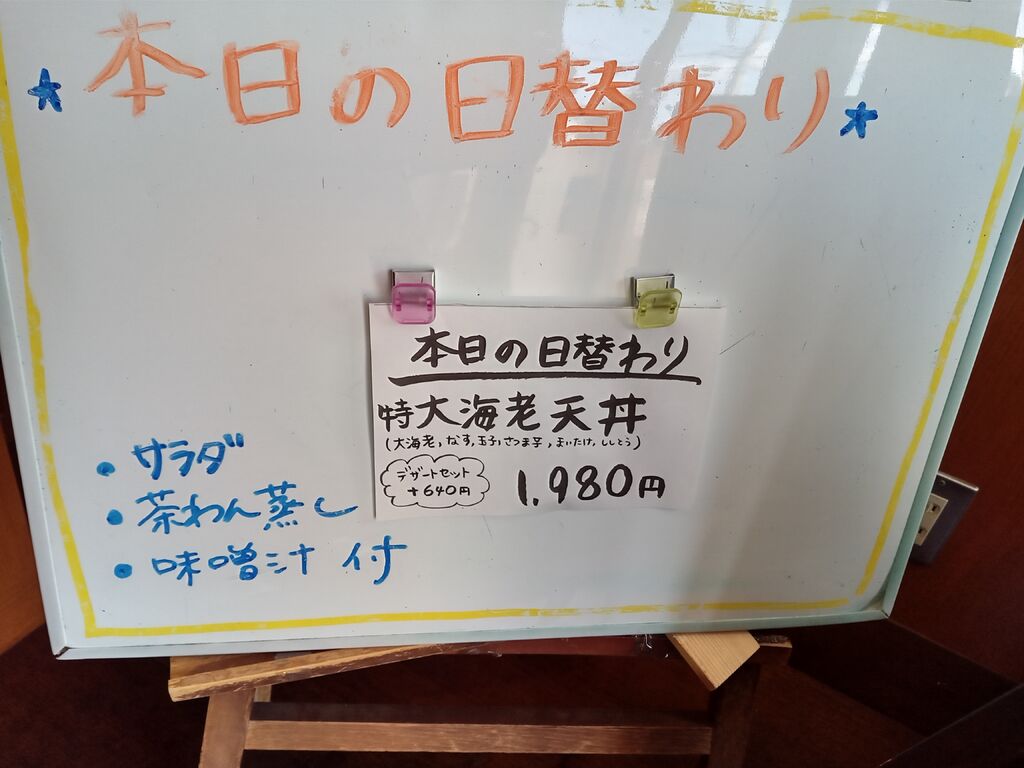 ★本日の日替わり★
本日の日替わり
特大海老天丼
(大海老,なす,玉子,さつま芋,まいたけ,ししとう)
デザートセット
+640円
1,980円
・サラダ
・茶わん蒸し
・味噌汁 付